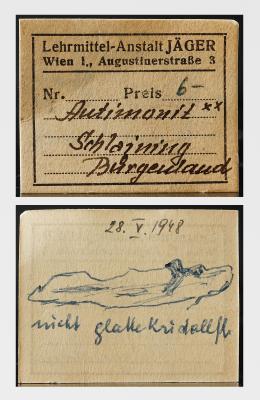 Lehrmittel-Anstalt JÄGER
Wien I., Augustinerstraße 3
Nr. Preis 6-
Antimonit xx
Schlaining
Burgenland
28. V. 1948
nicht glatte